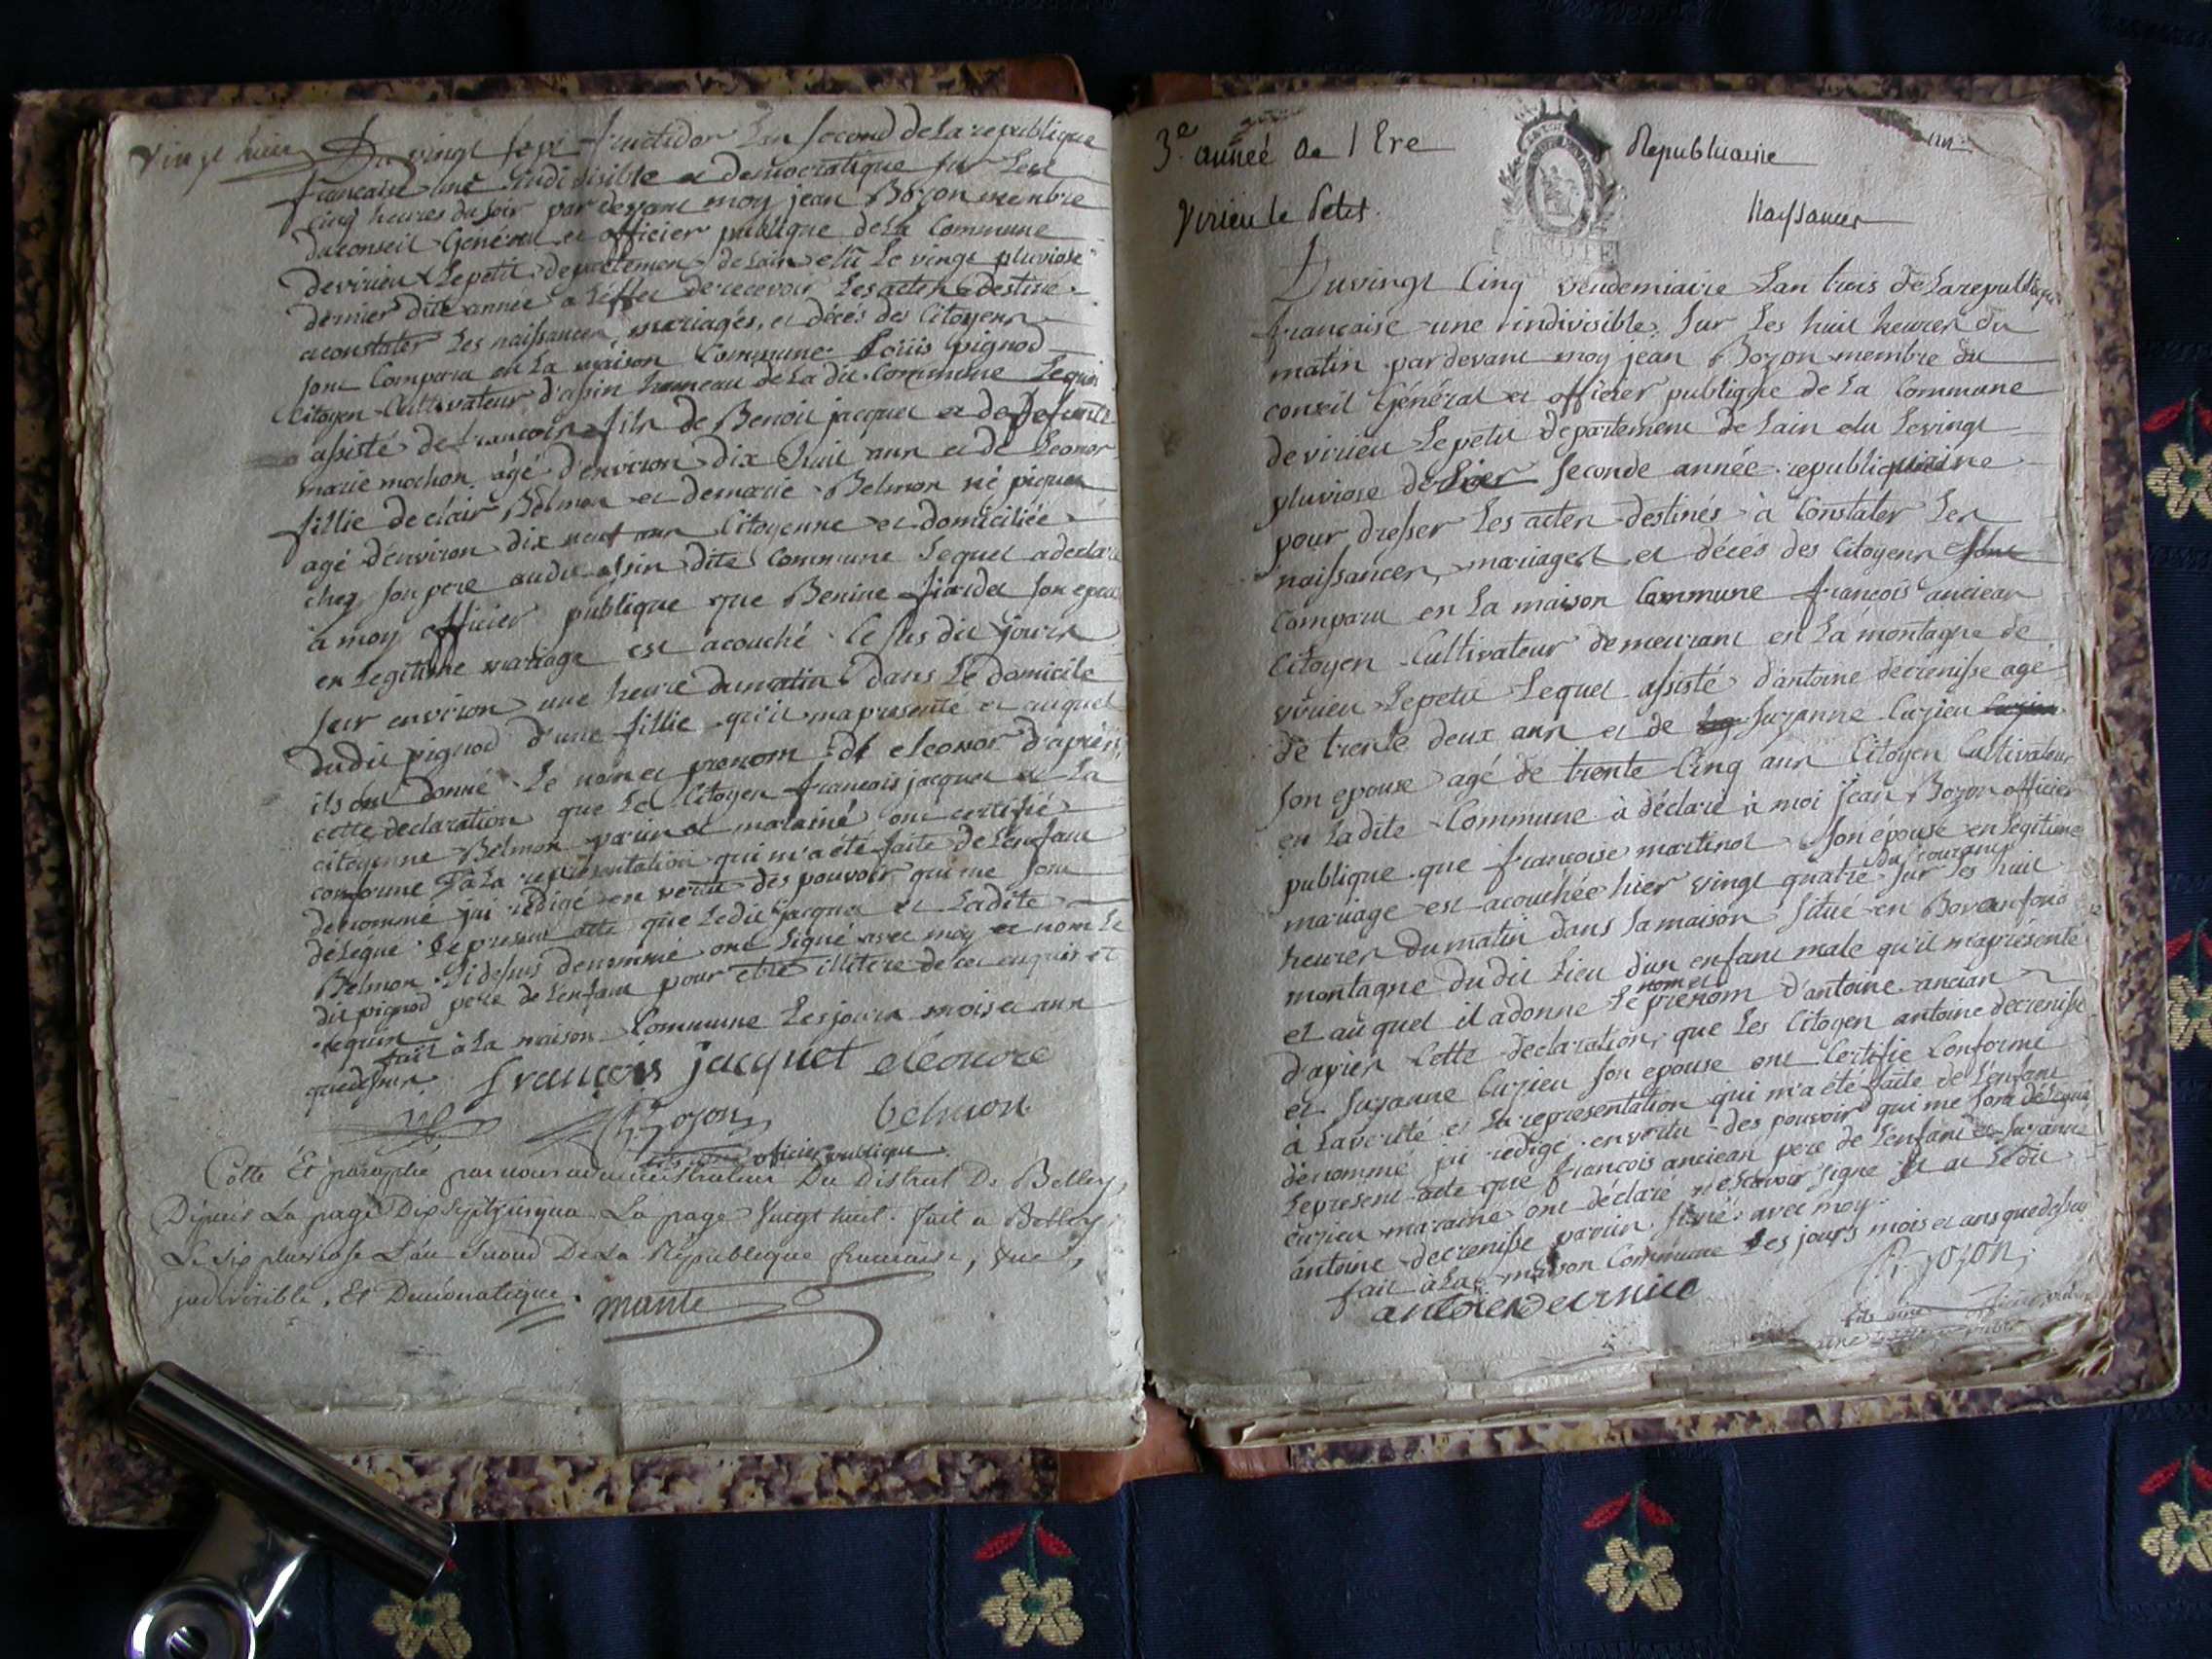 vingt huit
Du vingt sept fructidor Lan second de La republique
francaise une indivisible et democratique sur Les
cinq heures du soir par devant moy jean Bozon membre
du conseil Général et officier publique de La Commune
de virieu Le petit departement de Lain elu Le vingt pluviose
dernier dite année a L'effet de recevoir Les actes destiné
a constater Les naissances mariagés, et décés des Citoyens
sont Comparu en La maison Commune Loüis pignod
Citoyen Cultivateur d'assin hameau de La dit Commune Lequel
assisté de francois fils de Benoit jacquet et de defunte
marie mochon agé d'environ dix huit ans et de Leonor
fillie de clair Belmon et de marie Belmon né pignod
agé d'environ dix neuf ans Citoyenne et domiciliée
chez son pere au dit assin dite Commune Lequel a declaré
à moy officier publique que Benine son epouse
en Legitime mariage est acouché Ce jour
sur environ une heure du matin dans Le domicile
du dit pignod d'une fillie qu'il ma presente et auquel
ils ont donné Le nom et prenom de eleonor d'après
cette declaration que Le Citoyen francois jacquet et La
citoyenne Belmon parin et maraine ont certifié
conforme à La representation qui m'a été faite de L'enfant
denommé jai redigé en vertu des pouvoir qui me sont
délegué Le present acte que Ledit jacquet et Ladite
Belmon Ci dessus denommé ont signé avec moy et nom Le
dit pignod pere de L'enfant pour etre illitere de ce enquis et
requis
fait à La maison Commune Les jours mois et ann
que dessus francois jacquet eleonore
Bozon belmon
officier publique
Cotté Et paraphé par nous administrateur Du District De Belley
Depuis La page Dix sept jusqua La page Vingt huit. fait a Belley
Le six pluviose L'an Second De La République francaise, une,
indivisible, Et Democratique. mante
3.e année de l Ere Republicaine
Virieu le Petit. Naissances
Du vingt Cinq vendemiaire Lan trois de La republique
francaise une indivisible, sur Les huit heures du
matin par devant moy jean Bozon membre du
conseil Général et officier publique de La Commune
de virieu Le petit departement de Lain elu Le vingt
pluviose seconde année republiquaine
pour dresser Les actes destinés à Constater Les
naissances, mariages et décés des Citoyens
Comparu en La maison Commune francois anciean
Citoyen Cultivateur demeurant en La montagne de
virieu Lepetit Lequel assisté d'antoine decrenisse agé
de trente deux ans et de Suzanne Curzieu
son epouse agé de trente Cinq ans Citoyen Cultivateur
en Ladite Commune à déclaré à moi jean Bozon officier
publique que françoise martinod son épouse en Legitime
mariage est acouchée hier vingt quatre du courant sur Les huit
heures du matin dans sa maison situé en
montagne du dit Lieu d'un enfant male qu'il m'apresenté
et auquel il a donne Le nom et prénom d'antoine ancian
d'après Cette declaration, que Les Citoyen antoine decrenisse
et Suzanne Curzieu son epouse ont Certifie Conforme
à La verité et La representation qui m'a été faite de L'enfant
dénommé jai redigé en vertu des pouvoir qui me sont délegué
Le present acte que francois anciean pere de L'enfant et Suzanne
curzieu maraine ont déclaré ne savoir signe et Ledit
antoine decrenisse parin signé avec moy.
fait à La maison Commune Les jours mois et ans que dessus
antoine decrnice Bozon
fils aine